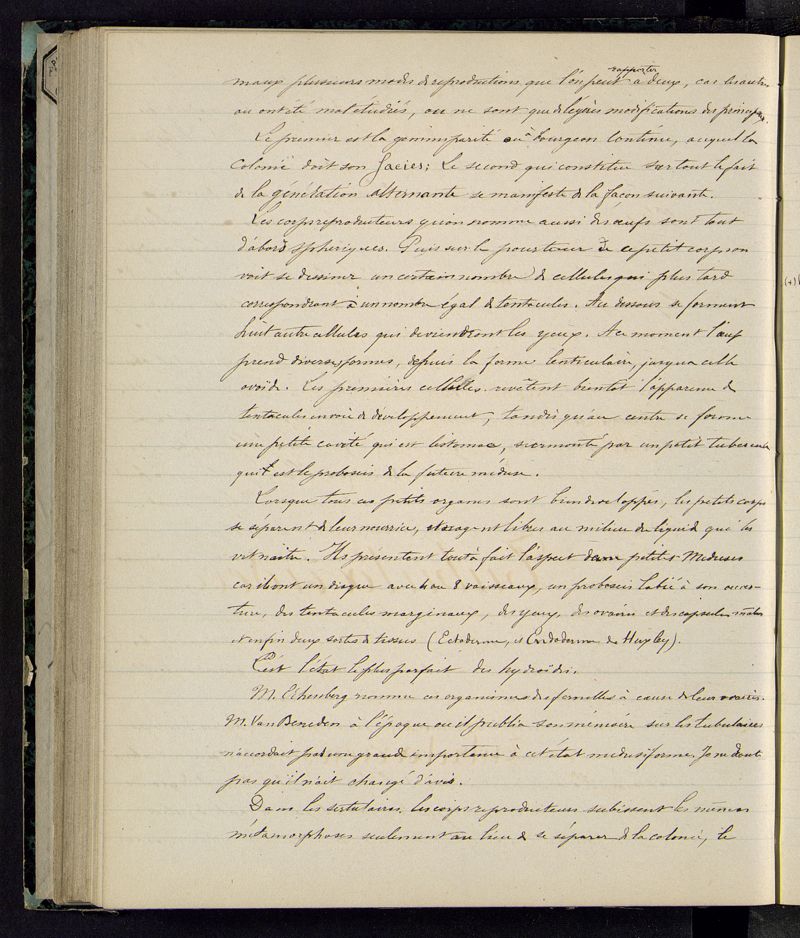 maux plusieurs modes de reproductions que l'on peut rapporter à deux, car les autres
ou ont été mal étudiés, ou ne sont que de légères modifications des principes.
Le premier est la gemmiparité ou à bourgeon continu, auquel la
Colonie doit son facies; Le second qui constitue surtout le fait
de la génération alternante se manifeste de la façon suivante.
Les corps reproducteurs qu'on nomme aussi des œufs sont tout
d'abord sphériques. Puis sur le pourtour de ce petit corps on
voit se dessiner un certain nombre de cellules qui plus tard
correspondront à un nombre égal de tentacules. Au dessous se forment
huit autre cellules qui deviendront les yeux. A ce moment l'œuf
prend diverses formes, depuis la forme lenticulaire, jusqu'a celle
ovoïde. Les premières cellules revêtent bientôt l'apparence de
tentacules en voie de développement, tandis qu'au centre se forme
une petite cavité qui est l'estomac, surmonté par un petit tubercule
qui est le proboscis de la future méduse.
Lorsque tous ces petits organes sont bien développés, les petits corps
se séparent de leur nourrice, et nagent libres au milieu du liquide qui les
vit naître. Ils présentent tout à fait l'aspect de petites Meduses
car ils ont un disque avec 4 ou 8 vaisseaux, un proboscis labié à son ouver-
ture, des tentacules marginaux, des yeux, des ovaires et des capsules mâles
et enfin deux sortes de tissus (Ectoderme, et Endoderme de Huxley).
C'est l'état le plus parfait des hydroïdes.
M. Ehrenberg nomme ces organismes des femelles à cause de leur ovaires.
M. Van Beneden à l'époque ou il publia son mémoire sur les tubulaires
n'accordait pas une grande importance à cet état medusiforme. Je ne doute
pas qu'il n'ait changé d'avis.
Dans les sertulaires, les corps reproducteurs subissent les mêmes
métamorphoses seulement au lieu de se séparer de la colonie, le